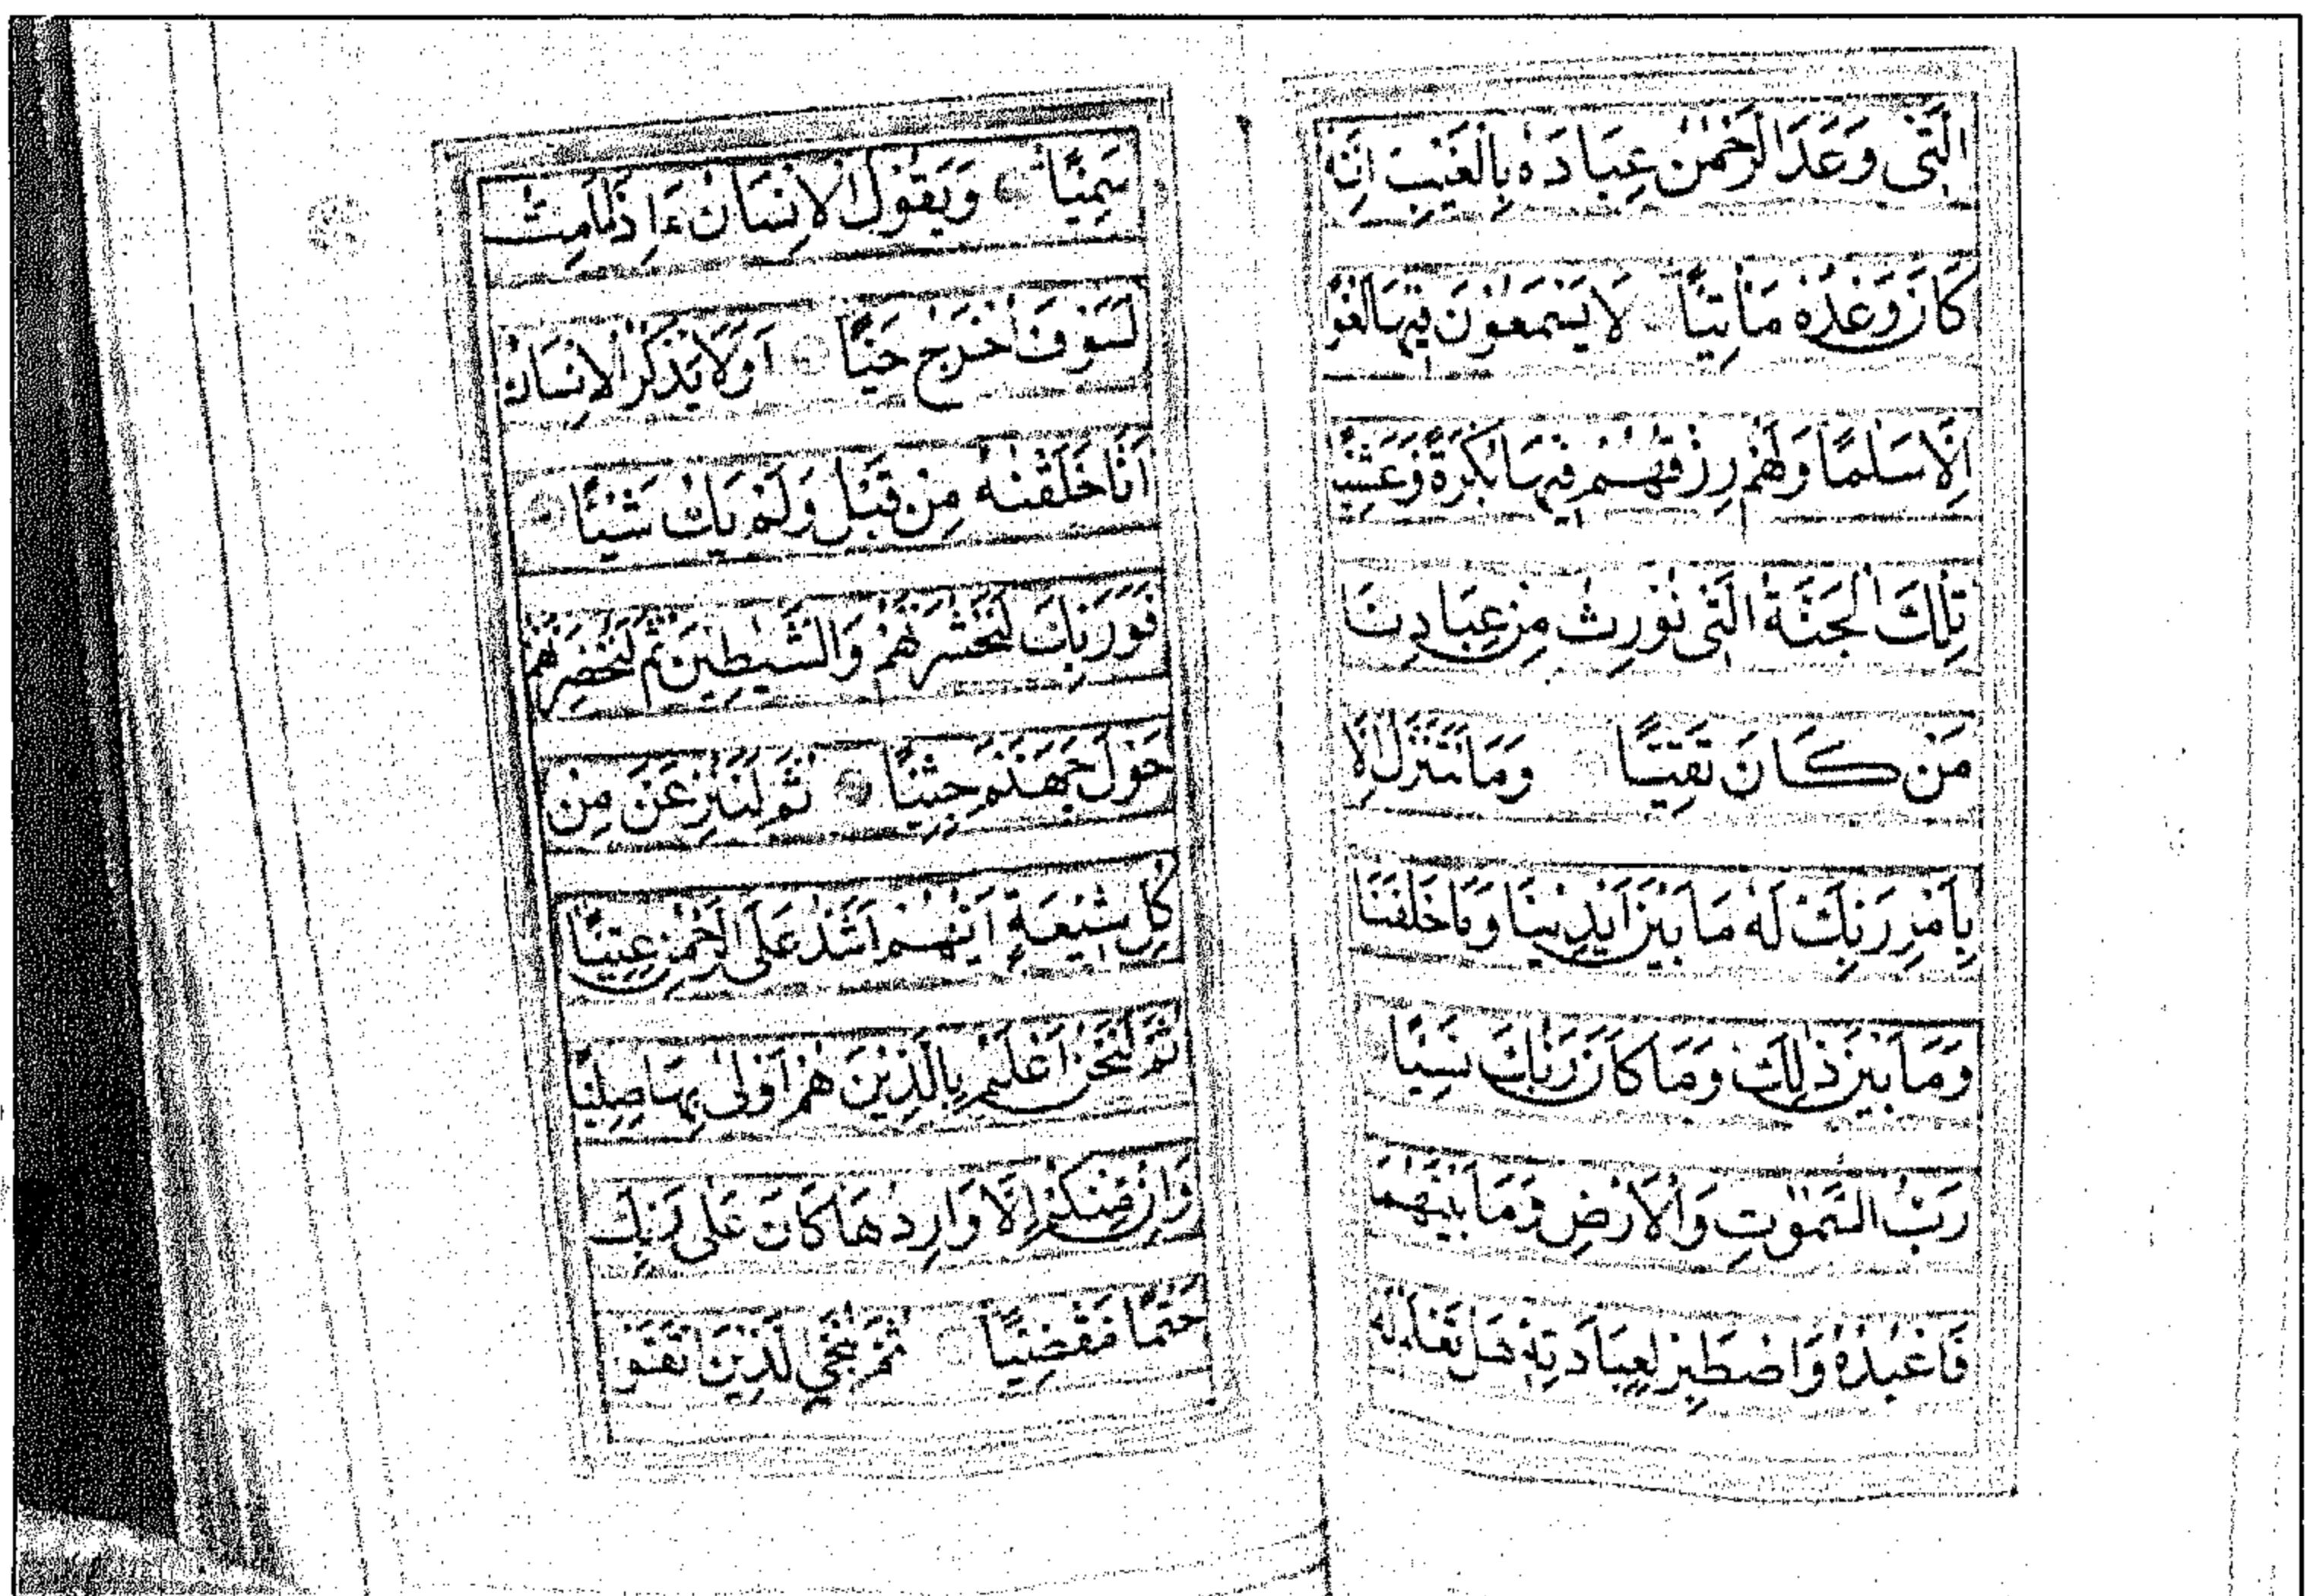 الَّتِي وَعَدَ الرَّحْمٰنُ عِبَادَهُ بِالْغَيْبِ اِنَّهُ
كَانَ وَعْدُهُ مَأْتِيًّا لَا يَسْمَعُونَ فِيهَا لَغْوًا
اِلَّا سَلٰمًا وَلَهُمْ رِزْقُهُمْ فِيهَا بُكْرَةً وَعَشِيًّا
تِلْكَ الْجَنَّةُ الَّتِي نُورِثُ مِنْ عِبَادِنَا
مَنْ كَانَ تَقِيًّا وَمَا نَتَنَزَّلُ اِلَّا
بِاَمْرِ رَبِّكَ لَهُ مَا بَيْنَ اَيْدِينَا وَمَا خَلْفَنَا
وَمَا بَيْنَ ذٰلِكَ وَمَا كَانَ رَبُّكَ نَسِيًّا
رَبُّ السَّمٰوٰتِ وَالْاَرْضِ وَمَا بَيْنَهُمَا
فَاعْبُدْهُ وَاصْطَبِرْ لِعِبَادَتِهِ هَلْ تَعْلَمُ لَهُ
سَمِيًّا وَيَقُولُ الْاِنْسَانُ ءَاِذَا مَا مِتُّ
لَسَوْفَ اُخْرَجُ حَيًّا اَوَلَا يَذْكُرُ الْاِنْسَانُ
اَنَّا خَلَقْنٰهُ مِنْ قَبْلُ وَلَمْ يَكُ شَيْئًا
فَوَرَبِّكَ لَنَحْشُرَنَّهُمْ وَالشَّيٰطِينَ ثُمَّ لَنُحْضِرَنَّهُمْ
حَوْلَ جَهَنَّمَ جِثِيًّا ثُمَّ لَنَنْزِعَنَّ مِنْ
كُلِّ شِيعَةٍ اَيُّهُمْ اَشَدُّ عَلَى الرَّحْمٰنِ عِتِيًّا
ثُمَّ لَنَحْنُ اَعْلَمُ بِالَّذِينَ هُمْ اَوْلٰى بِهَا صِلِيًّا
وَاِنْ مِنْكُمْ اِلَّا وَارِدُهَا كَانَ عَلٰى رَبِّكَ
حَتْمًا مَقْضِيًّا ثُمَّ نُنَجِّي الَّذِينَ اتَّقَوْا